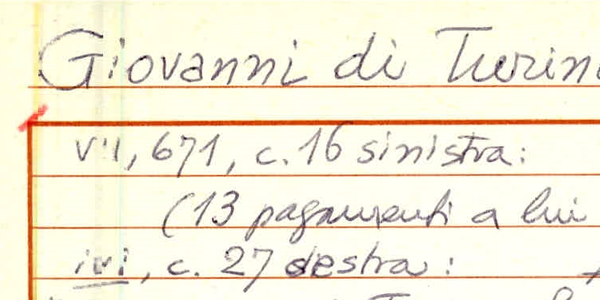 Giovanni di Turin
VII, 671, c. 16 sinistra:
(13 pagamenti a lui
ivi, c. 27 destra: